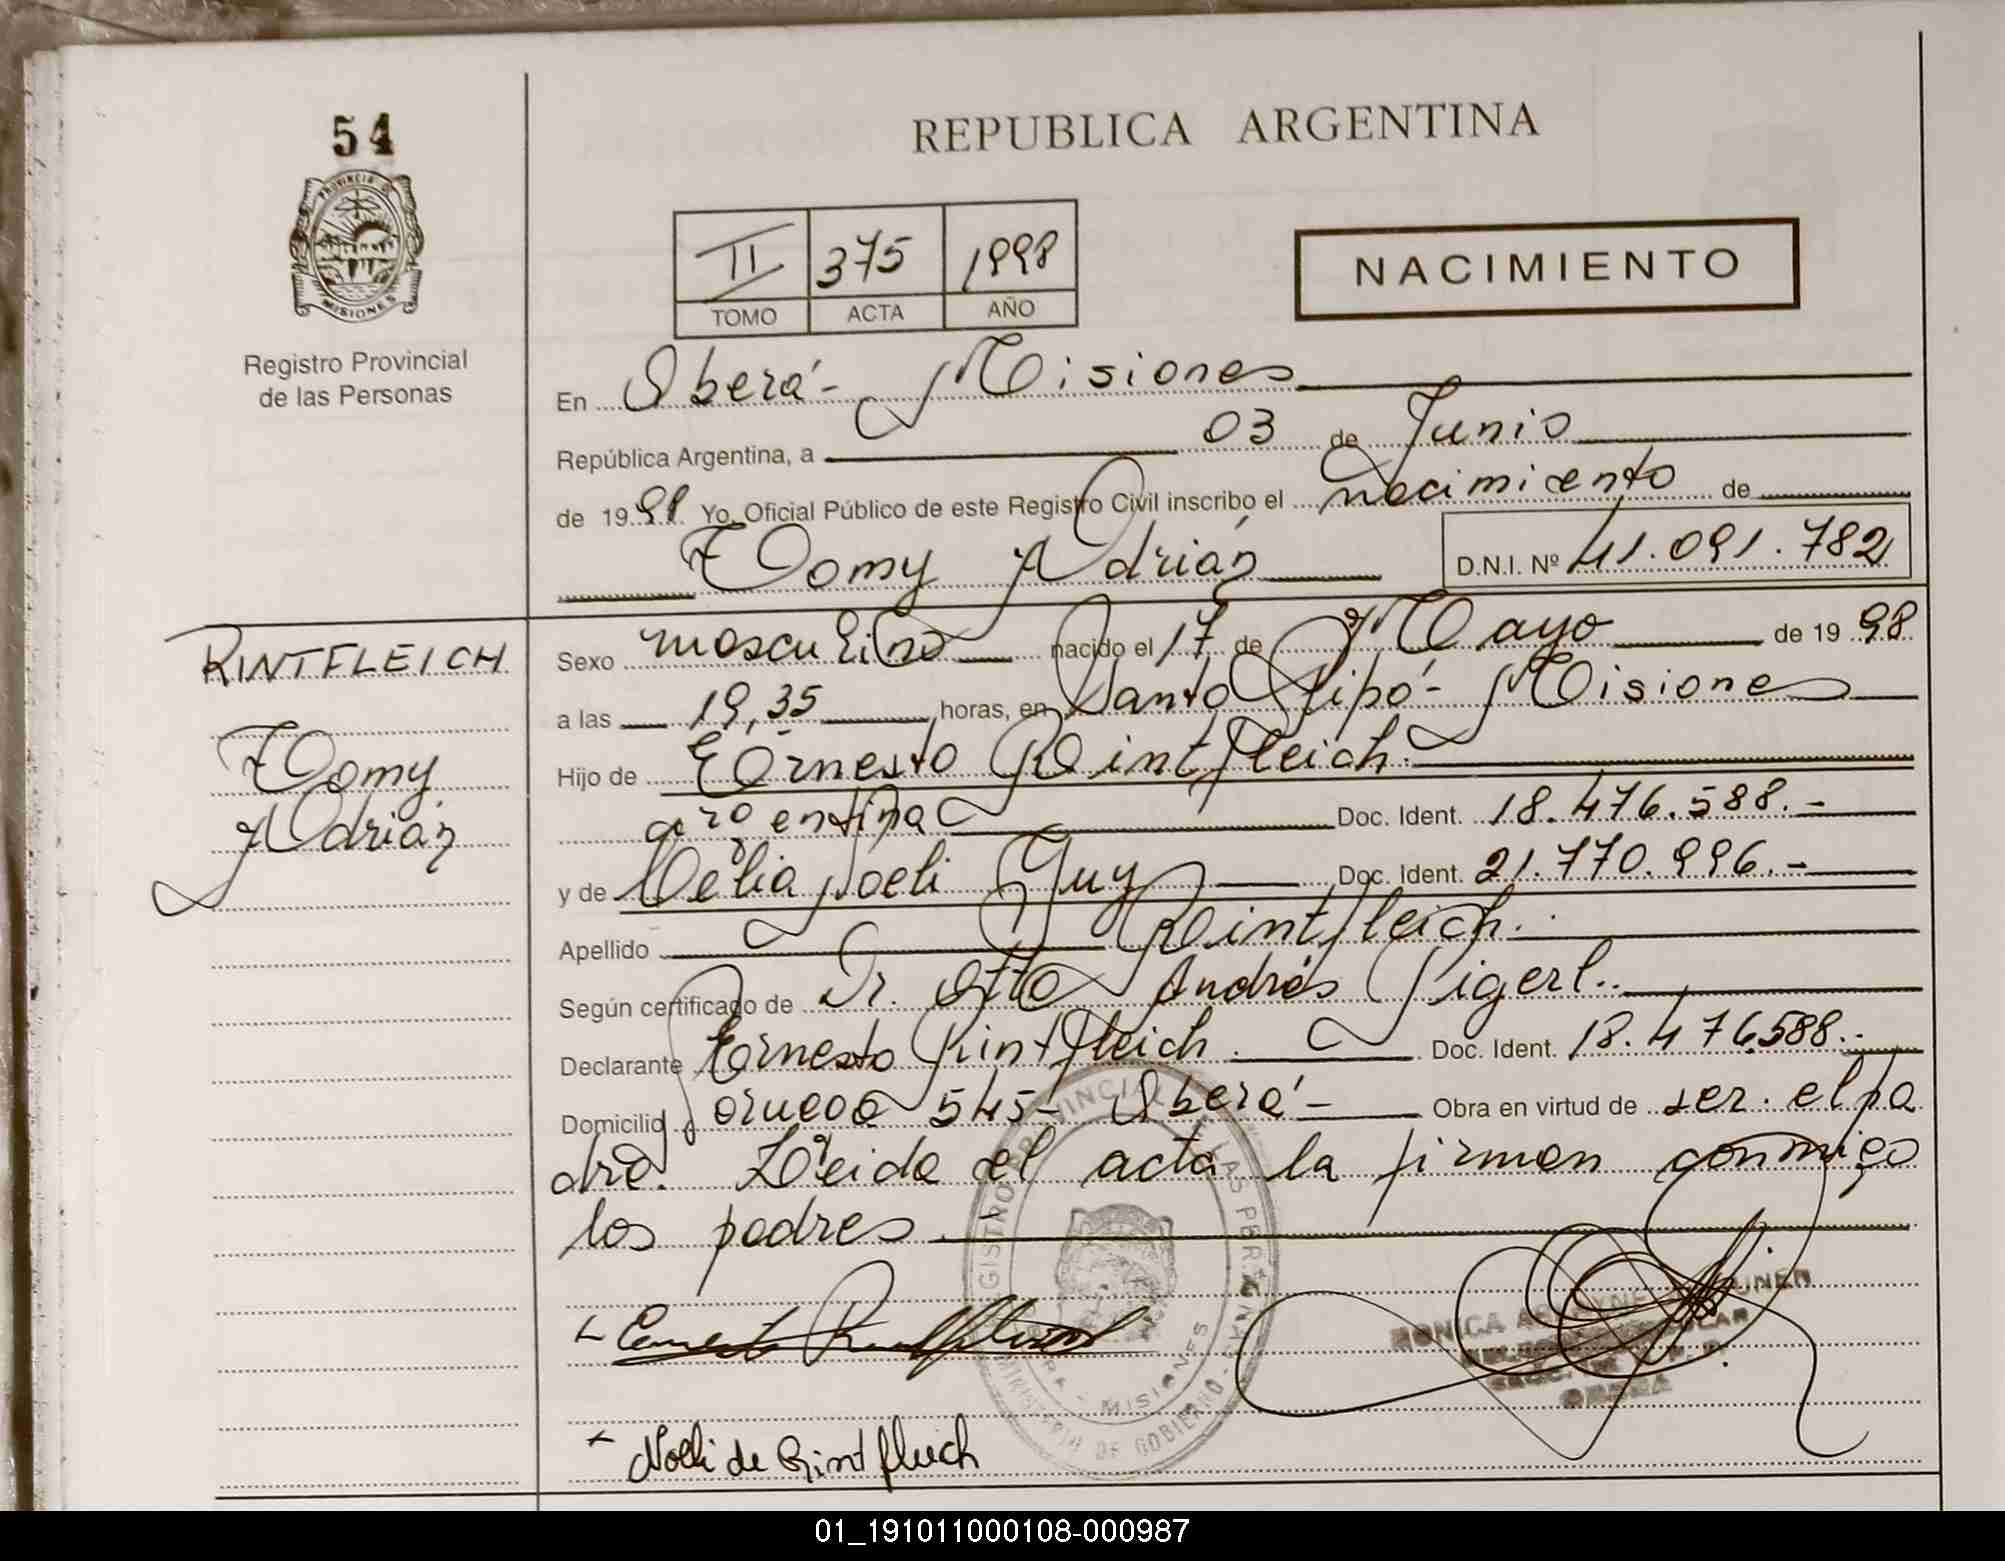 54
REPUBLICA ARGENTINA
PROVINCIA DE
MISIONES
Registro Provincial
de las Personas
II 375 1998
TOMO ACTA AÑO
NACIMIENTO
En Oberá - Misiones
República Argentina, a 03 de Junio
de 1998 Yo, Oficial Público de este Registro Civil inscribo el nacimiento de
Tomy Adrián D.N.I. Nº 41.091.782
RINTFLEICH
Tomy
Adrián
Sexo masculino nacido el 17 de Mayo de 1998
a las 19,35 horas, en Santo Pipó - Misiones
Hijo de Ernesto Rintfleich.
argentina Doc. Ident. 18.476.588.-
y de Celia Noeli Yuy Doc. Ident. 21.770.996.-
Apellido Rintfleich.
Según certificado de Dr. Otto Andrés Sigerl..
Declarante Ernesto Rintfleich. Doc. Ident. 18.476588.-
Domicilio 545 - Oberá - Obra en virtud de ser el pa
dre. Leida el acta la firman conmigo
los padres
Noeli de Rintfleich
MISIONES
01_191011000108-000987